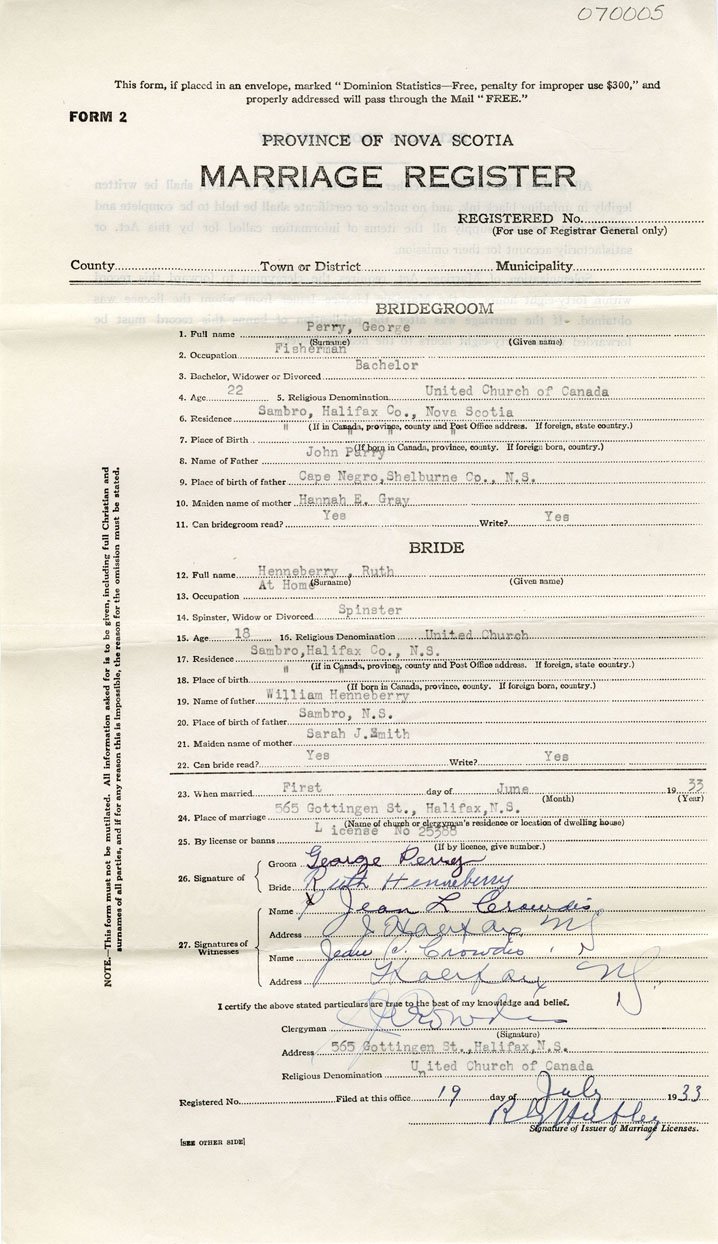 070005
This form, if placed in an envelope, marked "Dominion Statistics—Free, penalty for improper use $300," and
properly addressed will pass through the Mail "FREE."
FORM 2
PROVINCE OF NOVA SCOTIA
MARRIAGE REGISTER
REGISTERED No.
(For use of Registrar General only)
County Town or District Municipality
BRIDEGROOM
1. Full name Perry, George
(Surname) (Given name)
2. Occupation Fisherman
3. Bachelor, Widower or Divorced Bachelor
4. Age 22 5. Religious Denomination United Church of Canada
6. Residence Sambro, Halifax Co., Nova Scotia
(If in Canada, province, county and Post Office address. If foreign, state country.)
7. Place of Birth " " "
(If born in Canada, province, county. If foreign born, country.)
8. Name of Father John Parry
9. Place of birth of father Cape Negro,Shelburne Co., N.S.
10. Maiden name of mother Hannah E. Gray
11. Can bridegroom read? Yes Write? Yes
BRIDE
12. Full name Henneberry , Ruth
(Surname) (Given name)
13. Occupation At Home
14. Spinster, Widow or Divorced Spinster
15. Age 18 16. Religious Denomination United Church
17. Residence Sambro,Halifax Co., N.S.
(If in Canada, province, county and Post Office address. If foreign, state country.)
18. Place of birth " " "
(If born in Canada, province, county. If foreign born, country.)
19. Name of father William Henneberry
20. Place of birth of father Sambro, N.S.
21. Maiden name of mother Sarah J.Smith
22. Can bride read? Yes Write? Yes
23. When married First day of June 1933
(Month) (Year)
24. Place of marriage 565 Gottingen St., Halifax,N.S.
(Name of church or clergyman's residence or location of dwelling house)
25. By license or banns License No 25388
(If by licence, give number.)
26. Signature of
Groom George Perry
Bride Ruth Henneberry
27. Signatures of Witnesses
Name X Jean L Crowdis
Address Halifax NS
Name Jean Crowdis
Address Halifax NS
I certify the above stated particulars are true to the best of my knowledge and belief.
Clergyman Crowdis
(Signature)
Address 565 Gottingen St.,Halifax,N.S.
Religious Denomination United Church of Canada
Registered No. Filed at this office 19 day of July 1933
Signature of Issuer of Marriage Licenses.
[SEE OTHER SIDE]
NOTE.—This form must not be mutilated. All information asked for is to be given, including full Christian and
surnames of all parties, and if for any reason this is impossible, the reason for the omission must be stated.